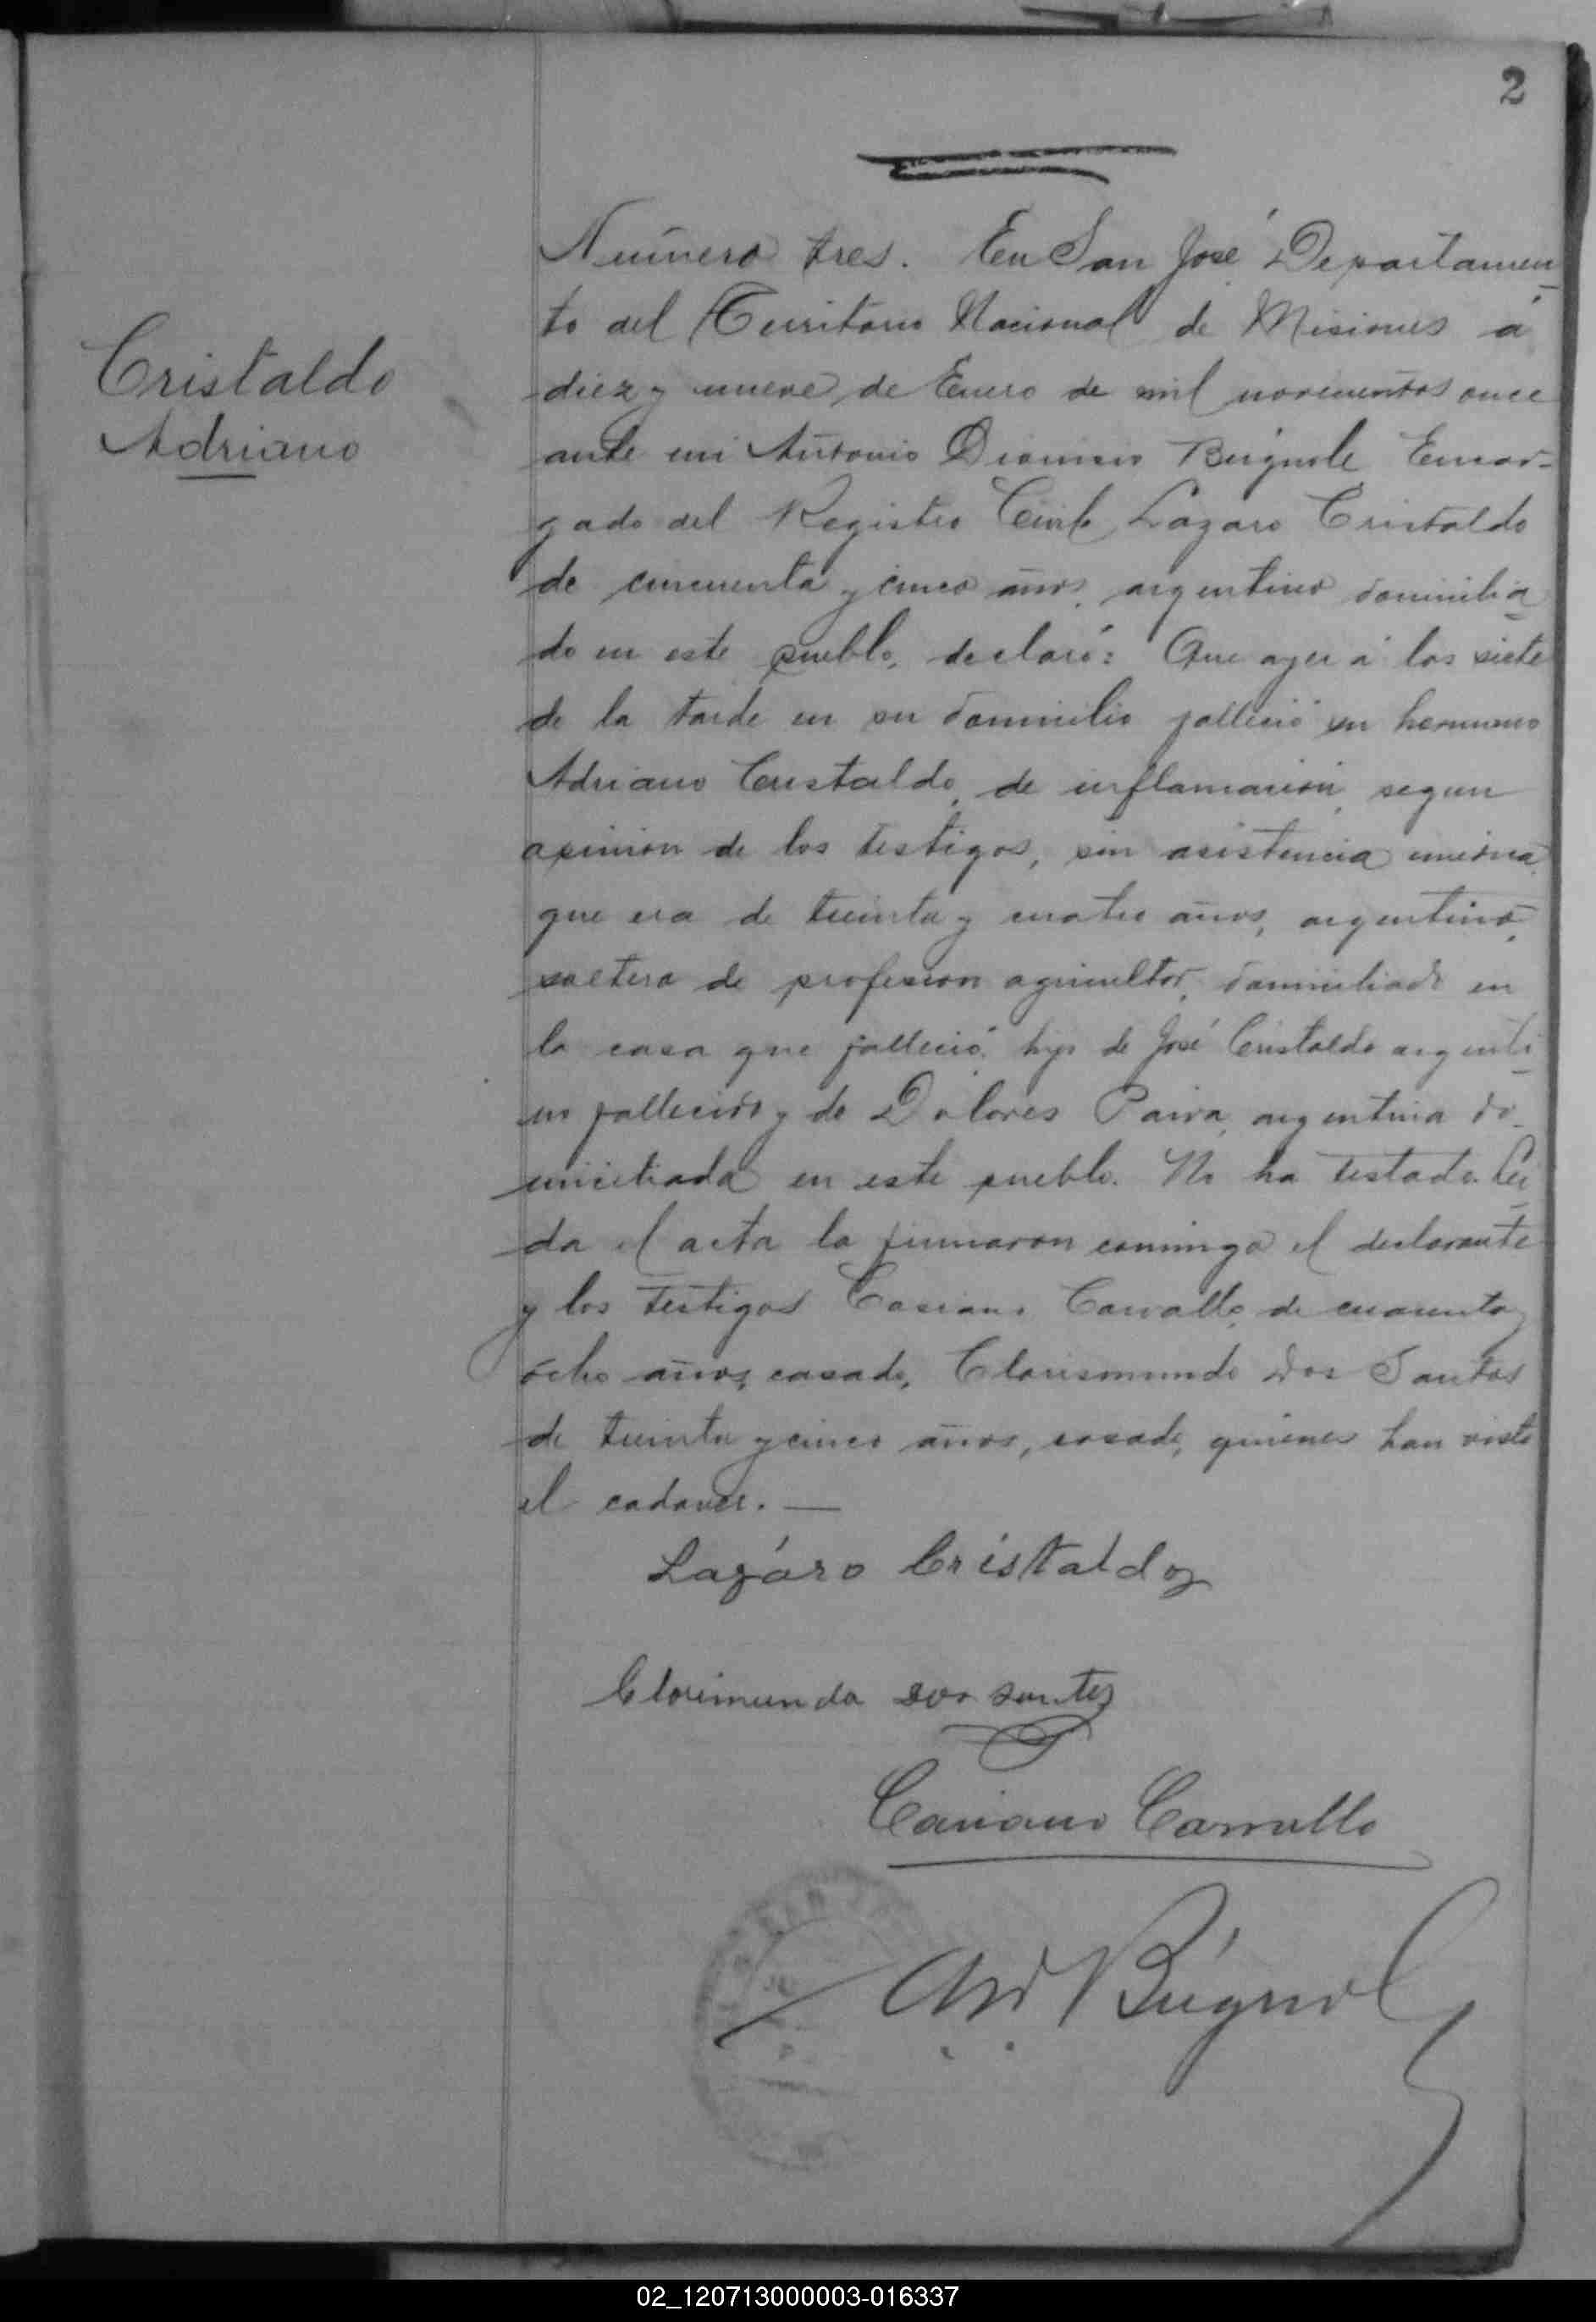 2
Número tres. En San José Departamen-
to del Territorio Nacional de Misiones á
Cristaldo
Adriano
diez y nueve de Enero de mil novecientos once
ante mi Antonio Dionisio Búgnole Encar-
gado del Registro Civil, Lázaro Cristaldo
de cincuenta y cinco años, argentino domicilia-
do en este pueblo, declaró: Que ayer á las siete
de la tarde en su domicilio falleció su hermano
Adriano Cristaldo, de inflamación, segun
opinion de los testigos, sin asistencia médica,
que era de treinta y cuatro años, argentino,
soltero de profesion agricultor, domiciliado en
la casa que falleció, hijo de José Cristaldo argenti-
no fallecido y de Dolores Paiva, argentina do-
miciliada en este pueblo. No ha testado. Lei-
da el acta la firmaron conmigo el declarante
y los testigos Casiano Carvallo, de cuarenta y
ocho años, casado, Clorismundo Dos Santos
de treinta y cinco años, casado, quienes han visto
el cadaver. —
Lazáro Cristaldo
Clorimundo dos santos
Casiano Carvallo
Ant D Búgnol
02_120713000003-016337